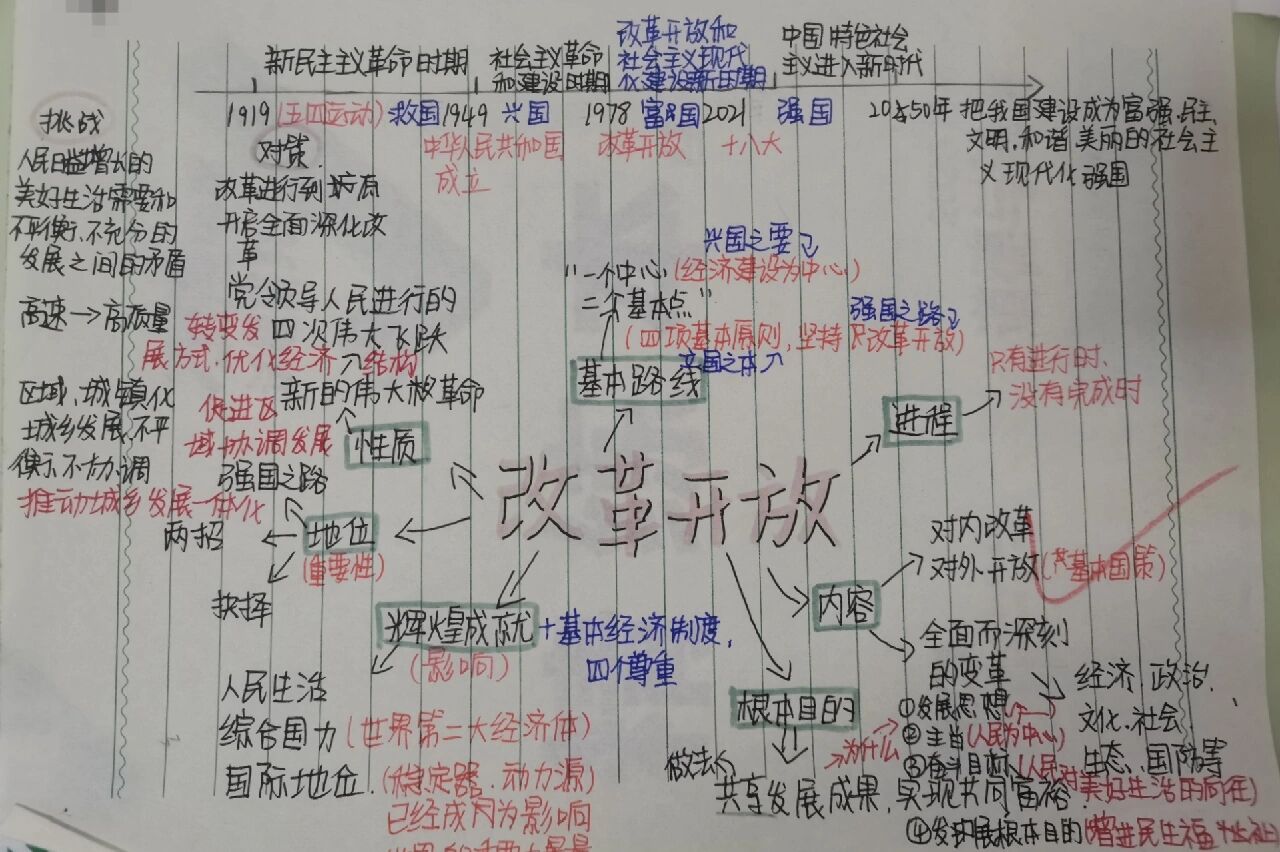 新民主主义革命时期
社会主义革命
和建设时期
改革开放和
社会主义现代
化建设新时期
中国特色社会
主义进入新时代
1919(五四运动)救国1949 兴国 1978 富国 2021 强国 2050年 把我国建设成为富强、民主、
文明、和谐 美丽的社会主
义现代化强国
中华人民共和国
成立
改革开放
十八大
挑战
人民日益增长的
美好生活需要和
不平衡、不充分的
发展之间的矛盾
高速→高质量
区域、城镇化
城乡发展、不平
衡、不协调
对策
改革进行到
开启全面深化改
革
转变发
展方式、优化经济
结构
促进区
域协调发展
推动城乡发展一体化
党领导人民进行的
四次伟大飞跃
新的伟大革命
性质
强国之路
两招
抉择
地位
(重要性)
兴国之要
"一个中心(经济建设为中心)
二个基本点"
强国之路
(四项基本原则,坚持改革开放)
立国之本
基本路线
进程
只有进行时、
没有完成时
改革开放
对内改革
对外开放(基本国策)
内容
全面而深刻
的变革
经济、政治、
文化、社会
生态、国防等
辉煌成就
(影响)
+基本经济制度,
四个尊重
人民生活
综合国力(世界第二大经济体)
国际地位(稳定器、动力源)
已经成为影响
根本目的
做法
为什么
共享发展成果,实现共同富裕
①发展思想
②主旨(人民为中心)
③奋斗目标(人民对美好生活的向往)
④发展根本目的(增进民生福祉)